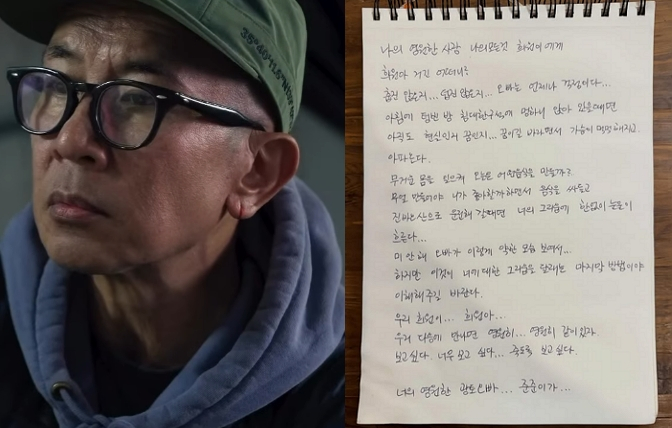 35°40'
나의 영원한 사랑 나의모든것 희원이에게
희원아 거긴 어떠니?
춥진 않은지... 덥진 않은지... 오빠는 언제나 걱정이다...
아침에 텅빈 방 침대한구석에 멍하니 앉아 있을때면
아직도 현실인지 꿈인지... 꿈이길 바라면서 가슴이 먹먹해지고.
아파온다.
무거운 몸을 일으켜 오늘은 어떤음식을 만들까?
무얼 만들어야 니가 좋아할까하면서 음식을 싸들고
진파로산으로 운전해 갈때면 너의 그리움에 한없이 눈물이
흐른다...
미안해 오빠가 이렇게 약한 모습 보여서...
하지만 이것이 너에 대한 그리움을 달래는 마지막 방법이야
이해해주길 바란다.
우리 희원이... 희원아...
우리 다음에 만나면 영원히... 영원히 같이있자.
보고싶다. 너무 보고 싶다... 죽도록 보고싶다.
너의 영원한 오빠... 준준이가...